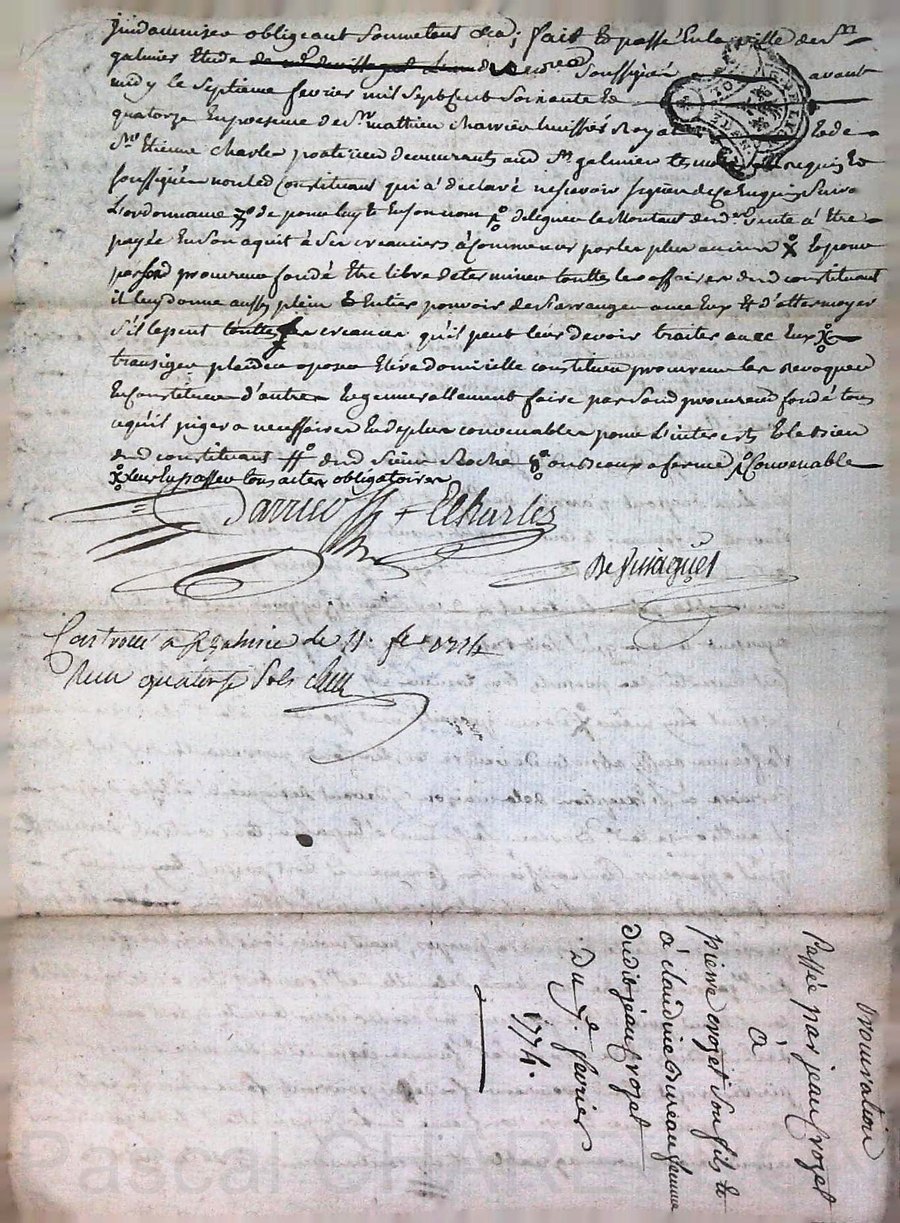 indamniser obligeant soumetant &a; fait & passé En la ville de St
galmier Etude de Soussigné avant
midy le Septieme fevrier mil Sept Cent Soixante Et
quatorze En presence de Sr mathieu charriere huissié Royal Et de
Sr Etienne Charles praticien demeurants aud St galmier temoins Requis Et
soussignés non led Constituant qui a declaré ne scavoir signer de ce Enquis Suivt
L'ordonnance de pour luy & En son nom deleguer le Montant de vente à Etre
payée En Son aquit à Ses creanciers à Commencer par les plus anciens X Et pour
par Sond procureur fondé Etre libre determiner touttes les affaires dud constituant
il luy donne aussy plein & Entier pouvoir de S'arranger avec Eux & d'attermoyer
S'il le peut touttes creances qu'il peut leur devoir traiter avec Eux
transiger plaider oposer Elire domicille constituer procureur les Revoquer
En Constituer d'autres Et generallement faire par Sond procureur fondé tout
ce qu'il jugera neccessaire Et de plus convenable pour L'interets Et le bien
dud constituant dud Sieur Roche ou sceaux a forme Convenable
X leur En passer tous actes obligatoires
E Charles
Controllé à St galmier le 11 fer 1774
Reçu quatorze Sols
procuration
Passée par jean crozet
à
pierre crozet Son fils Et
à claudine femme
dudit jean crozet
Du 7e fevrier
1774.
Pascal CHAR